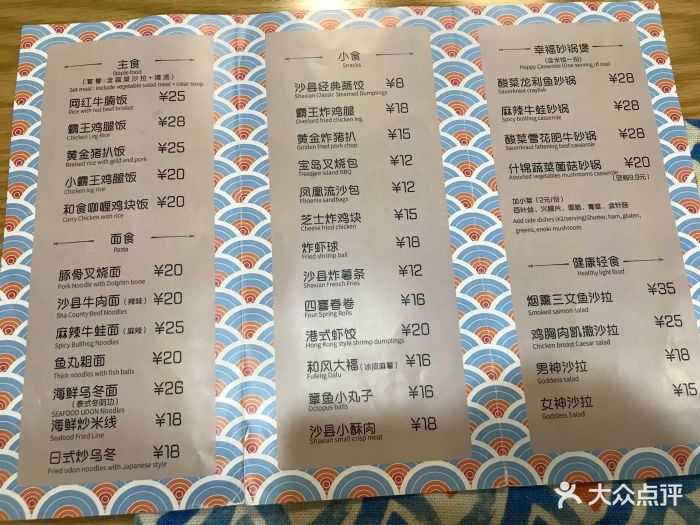 主食
Staple food
（套餐：含蔬菜沙拉+清汤）
Set meal : Include vegetable salad meal + clear soup
网红牛腩饭 ¥25
Rice with red beef brisket
霸王鸡腿饭 ¥28
Chicken Leg Rice
黄金猪扒饭 ¥25
Braised rice with gold and pork
小霸王鸡腿饭 ¥20
Chicken leg rice
和食咖喱鸡块饭 ¥20
Curry Chicken with rice
面食
Pasta
豚骨叉烧面 ¥20
Pork Noodle with Dolphin bone
沙县牛肉面（辣味） ¥20
Sha County Beef Noodles
麻辣牛蛙面（麻辣） ¥25
Spicy Bullfrog Noodles
鱼丸粗面 ¥20
Thick noodles with fish balls
海鲜乌冬面 ¥26
（泰式冬阴功）
SEAFOOD UDON Noodles
海鲜炒米线 ¥18
Seafood Fried Line
日式炒乌冬 ¥18
Fried udon noodles with Japanese style
小食
Snacks
沙县经典蒸饺 ¥8
Shaxian Classic Steamed Dumplings
霸王炸鸡腿 ¥18
Overlord fried chicken leg
黄金炸猪扒 ¥15
Golden fried pork chop
宝岛叉烧包 ¥12
Treasure Island BBQ
凤凰流沙包 ¥12
Phoenix sandbags
芝士炸鸡块 ¥15
Cheese fried chicken
炸虾球 ¥18
Fried shrimp ball
沙县炸薯条 ¥12
Shaxian French Fries
四喜春卷 ¥16
Four Spring Rolls
港式虾饺 ¥20
Hong Kong style shrimp dumplings
和风大福（冰皮麻薯） ¥16
Fufeng Dafu
章鱼小丸子 ¥16
Octopus balls
沙县小酥肉 ¥18
Shaxian small crisp meat
幸福砂锅煲
（含米饭一份）
Happy Casserole (One serving of rice)
酸菜龙利鱼砂锅 ¥28
Sauerkraut crayfish
麻辣牛蛙砂锅 ¥28
Spicy bullfrog casserole
酸菜雪花肥牛砂锅 ¥28
Sauerkraut fattening beef casserole
什锦蔬菜菌菇砂锅 ¥20
Assorted vegetables mushrooms casserole
加小菜（2元/份）
Add side dishes (¥2/serving)Shutter, ham, gluten,
greens, enoki mushroom
健康轻食
Healthy light food
烟熏三文鱼沙拉 ¥35
Smoked salmon salad
鸡胸肉凯撒沙拉 ¥25
Chicken breast Caesar salad
男神沙拉 ¥18
Goddess salad
女神沙拉 ¥15
Goddess Salad
大众点评